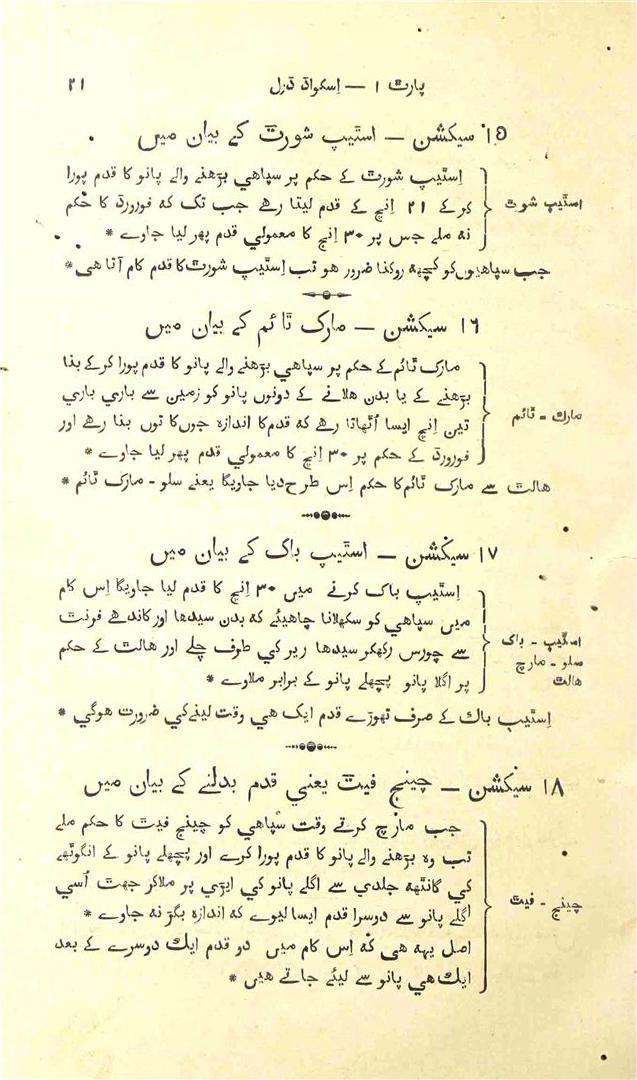 پارٽ ۱ — اِسکواڈ ڈرل ۲۱
۱۵ سیکشن — اسٹیپ شورٹ کے بیان میں
اسٹیپ شوٹ
اِسٹیپ شورٹ کے حکم پر سپاهي بڑھنے والے پانو کا قدم پورا
کر کے ۲۱ اِنچ کے قدم لیتا رهے جب تک که فورورڈ کا حُکم
نه ملے جس پر ۳۰ اِنچ کا معمولي قدم پھر لیا جاوے *
جب سپاهیوں کو کچھه روکنا ضرور هو تب اِسٹیپ شورٹ کا قدم کام آتا هی *
۱۶ سیکشن — مارک ٹائم کے بیان میں
مارک - ٹائم
مارک ٹائم کے حکم پر سپاهي بڑھنے والے پانو کا قدم پورا کرکے بنا
بڑھنے کے یا بدن هلانے کے دونوں پانو کو زمین سے باري باري
تین اِنچ ایسا اُٹھاتا رهے که قدم کا اندازہ جوں کا توں بنا رهے اور
فورورڈ کے حکم پر ۳۰ اِنچ کا معمولي قدم پھر لیا جاوے *
هالٹ سے مارک ٹائم کا حکم اِس طرح دیا جاویگا یعنے سلو - مارک ٹائم *
۱۷ سیکشن — اسٹیپ باک کے بیان میں
اسٹیپ - باک
سلو - مارچ
هالٹ
اِسٹیپ باک کرنے میں ۳۰ اِنچ کا قدم لیا جاویگا اِس کام
میں سپاهي کو سکھلانا چاهیئے که بدن سیدها اور کاندهے فرنٹ
سے چورس رکھکر سیدها ریر کي طرف چلے اور هالٹ کے حکم
پر اگلا پانو پچھلے پانو کے برابر ملاوے *
اِسٹیپ باك کے صرف تھوڑے قدم ایک هي وقت لینے کي ضرورت هوگي *
۱۸ سیکشن — چینج فیٹ یعني قدم بدلنے کے بیان میں
چینج - فیٹ
جب مارچ کرتے وقت سپاهي کو چینج فیٹ کا حکم ملے
تب وہ بڑھنے والے پانو کا قدم پورا کرے اور پچھلے پانو کے انگوٹھے
کي گانٹھه جلدي سے اگلے پانو کي ایڑي پر ملاکر جهٹ اُسي
اگلے پانو سے دوسرا قدم ایسا لیوے که اندازہ بگڑ نه جاوے *
اصل یہه هی که اِس کام میں دو قدم ایك دوسرے کے بعد
ایك هي پانو سے لیئے جاتے هیں *